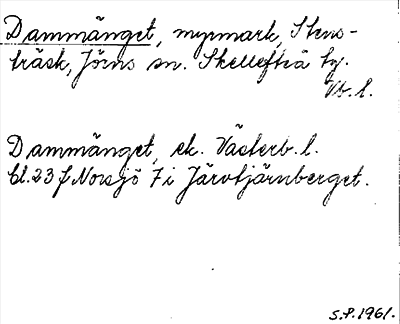 Dammänget, myrmark, Stens-
träsk, Jörns sn. Skellefteå tg.
Vb. l.
Dammänget, ek. Västerb. l.
bl. 23 f Norsjö 7 i Järvtjärnberget.
S.P. 1961.